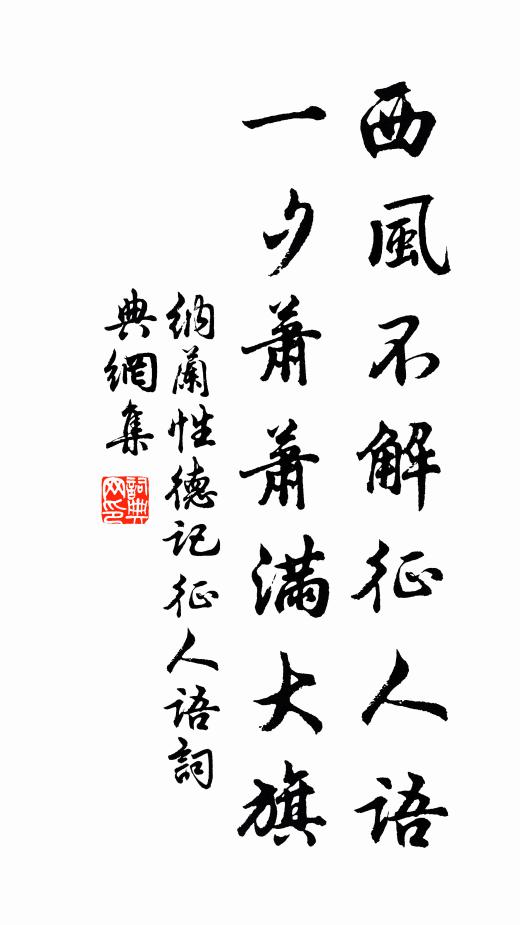 西風不解征人語
一夕蕭蕭滿大旗
納蘭性德記征人語詞
典網集
詞典网印